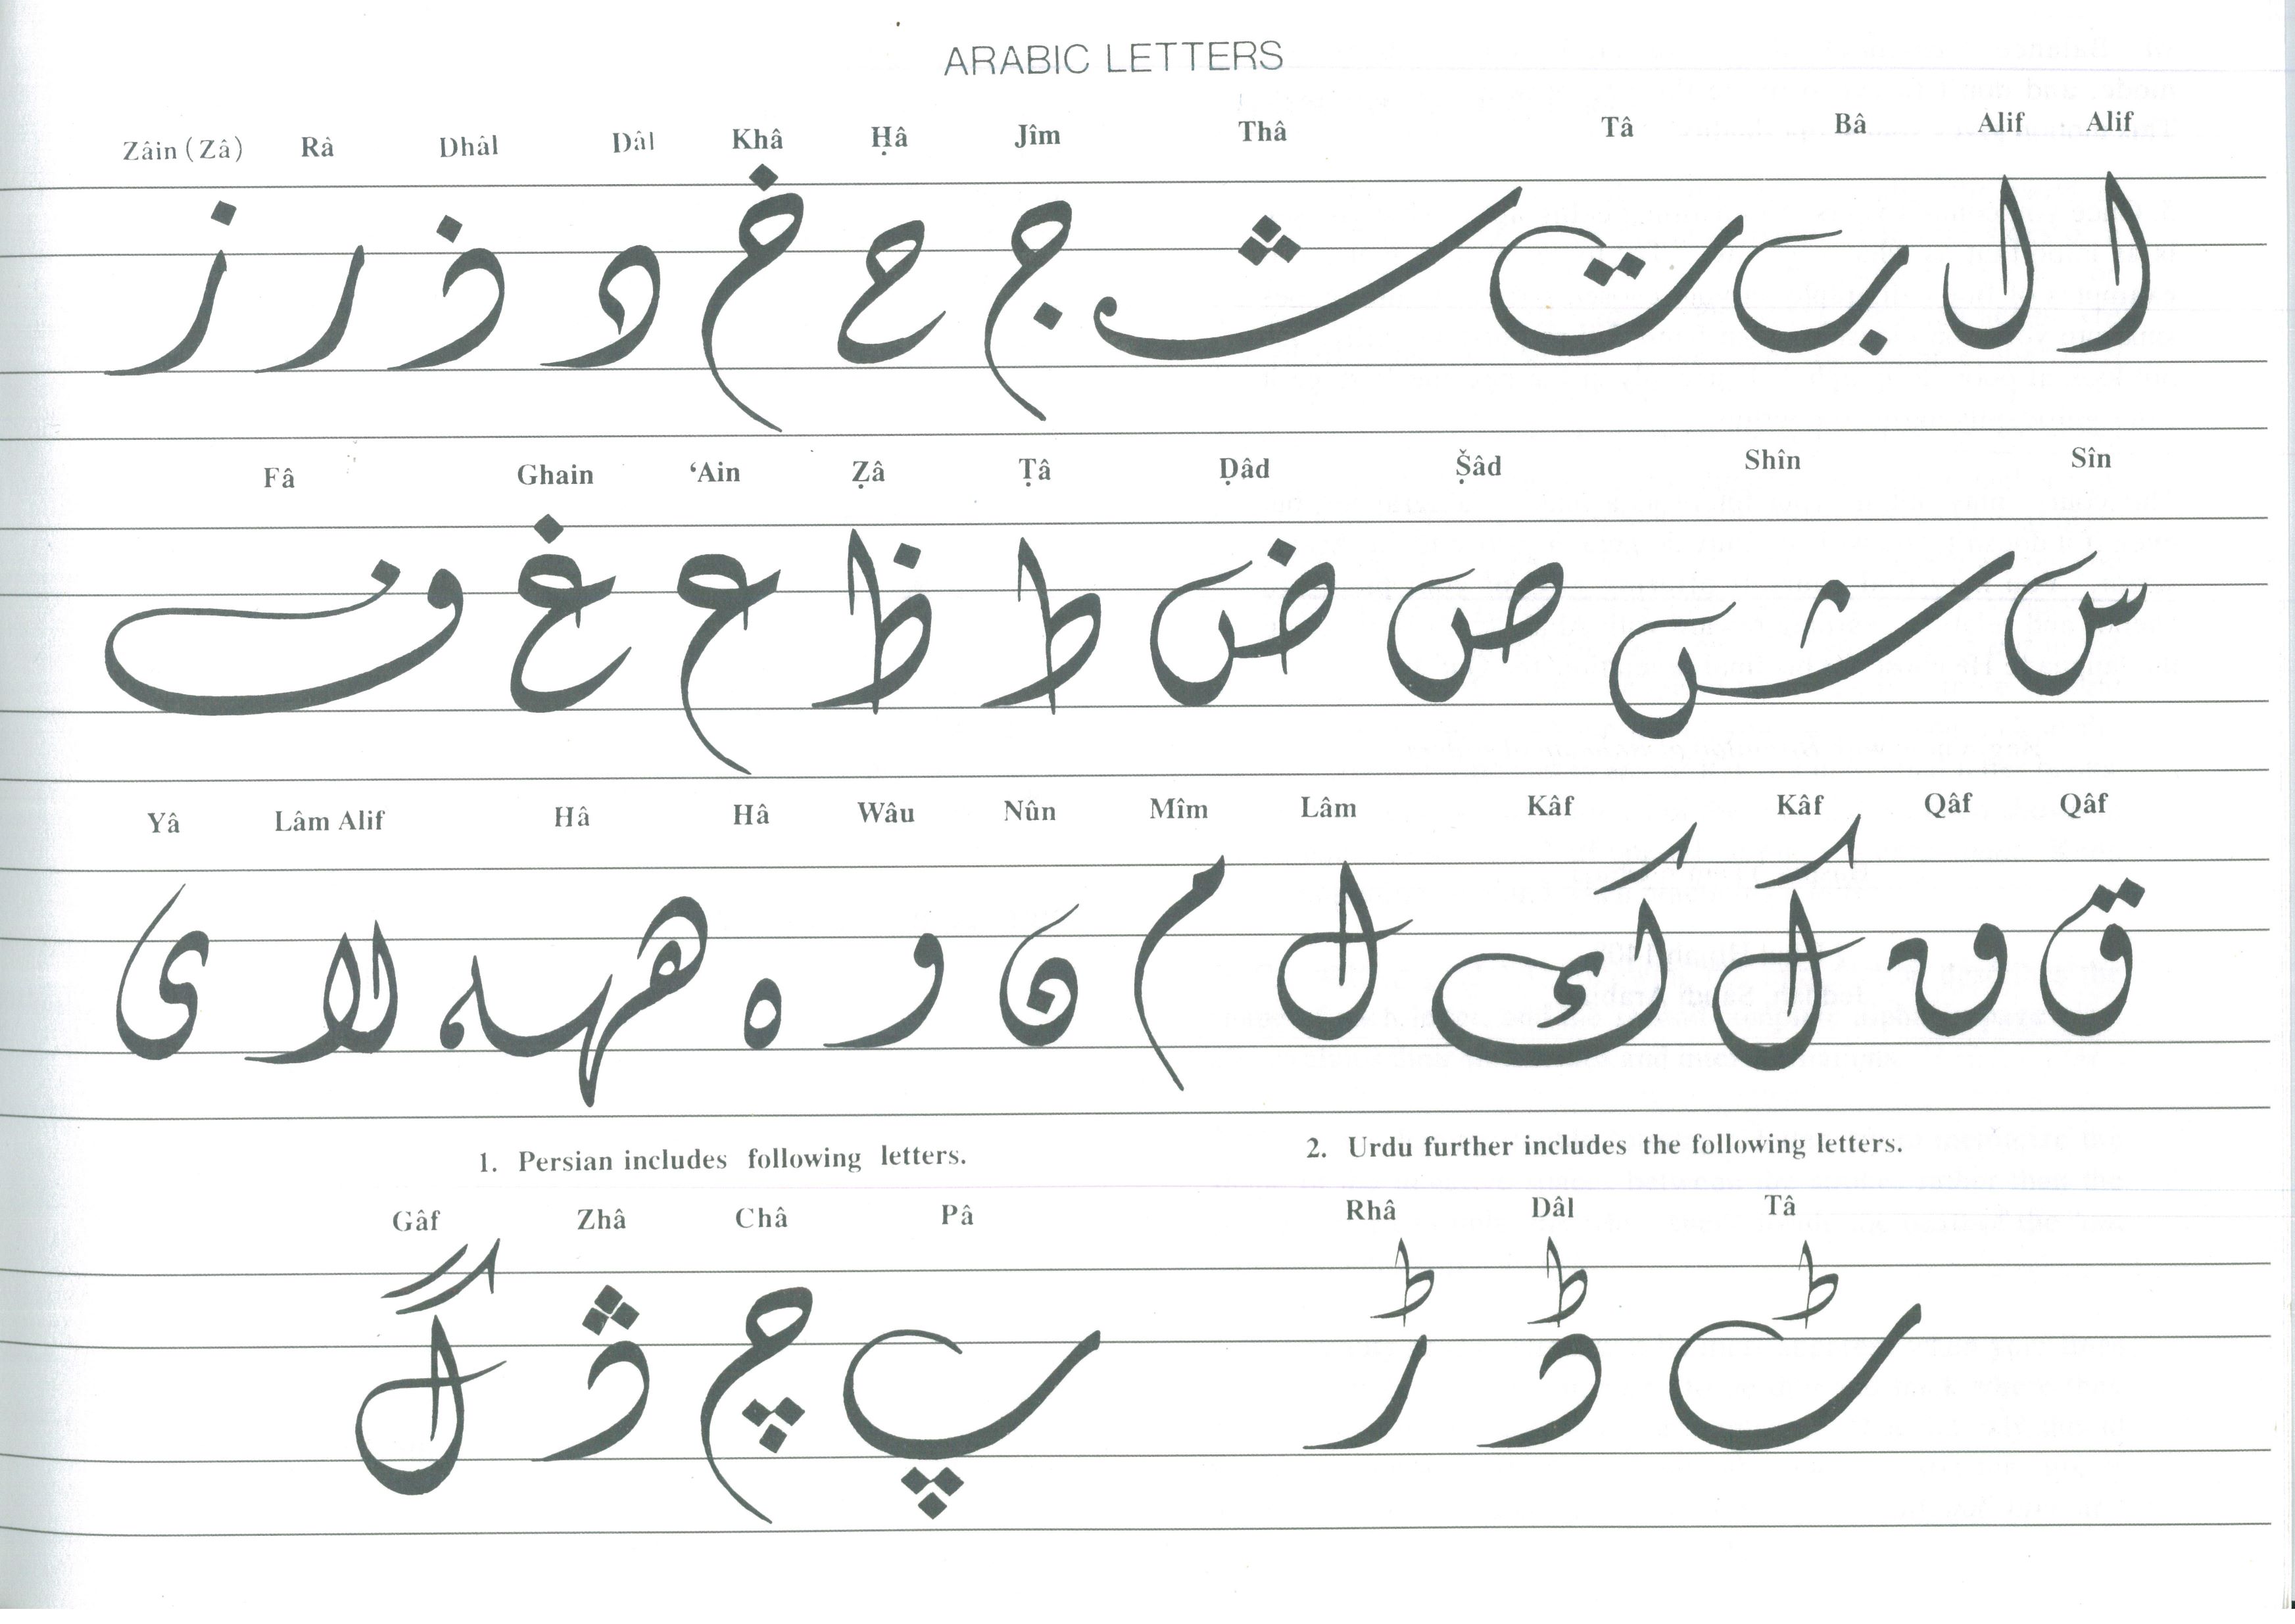 ARABIC LETTERS
Zâin (Zâ) Râ Dhâl Dâl Khâ Ḥâ Jîm Thâ Tâ Bâ Alif Alif
ا ا ب ت ث ج ح خ د ذ ر ز
Fâ Ghain ‘Ain Ẓâ Ṭâ Ḍâd Ṣ̌âd Shîn Sîn
س ش ص ض ط ظ ع غ ف
Yâ Lâm Alif Hâ Hâ Wâu Nûn Mîm Lâm Kâf Kâf Qâf Qâf
ق ق ك ك ل م ن و ه ه لا ى
1. Persian includes following letters. 2. Urdu further includes the following letters.
Gâf Zhâ Châ Pâ Rhâ Dâl Tâ
ٹ ڈ ڑ پ چ ژ گ